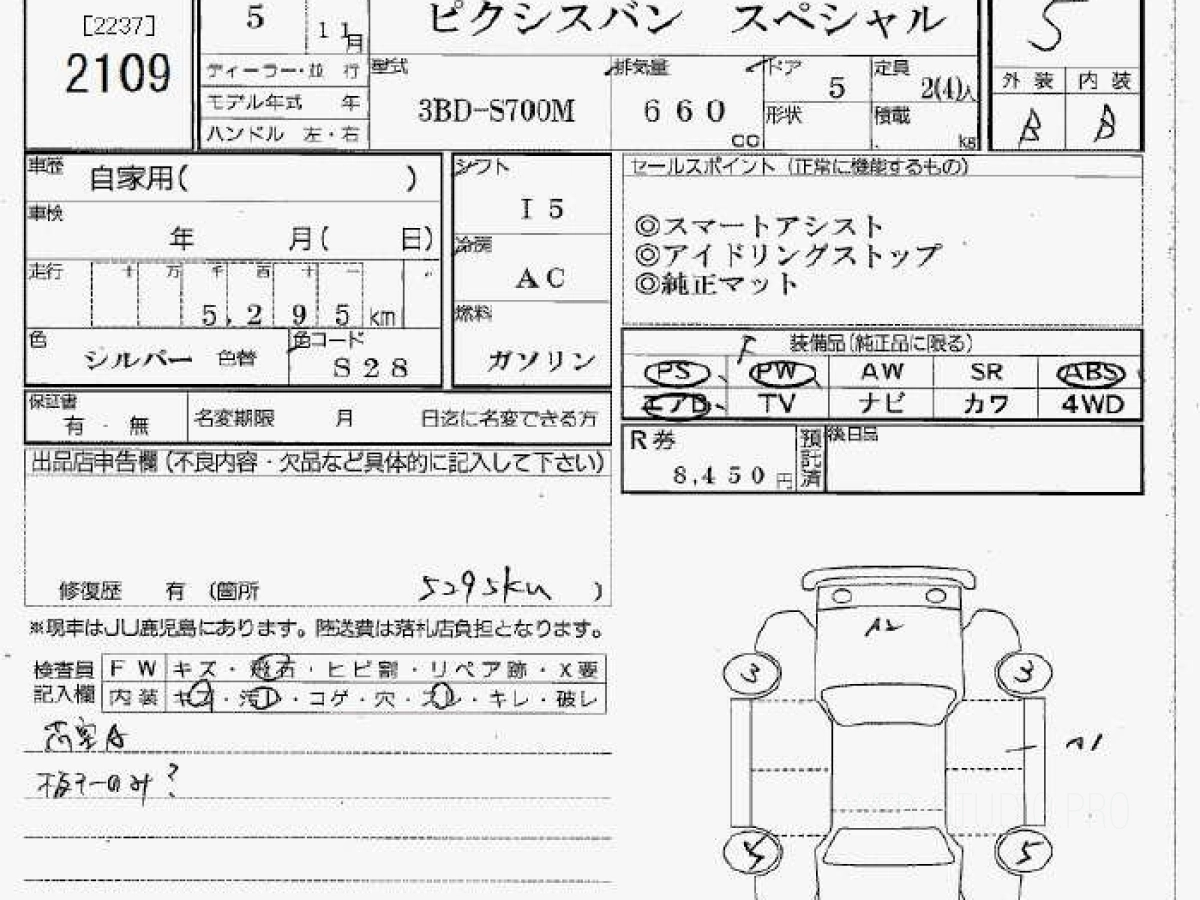 [2237]
2109
5
11月
ピクシスバン スペシャル
5
ディーラー・並 行
モデル年式 年
ハンドル 左・右
型式
3BD-S700M
排気量
660
cc
ドア
5
形状
定員
2(4)人
積載
kg
外装 内装
B B
車歴
自家用( )
車検
年 月( 日)
走行
十 万 千 百 十 一
5,295 km
色
シルバー 色替
色コード
S28
シフト
I5
冷房
AC
燃料
ガソリン
セールスポイント (正常に機能するもの)
◎スマートアシスト
◎アイドリングストップ
◎純正マット
装備品(純正品に限る)
PS PW AW SR ABS
エアB TV ナビ カワ 4WD
保証書
有 ・ 無
名変期限 月 日迄に名変できる方
R券
8,450円
預託済
後日品
出品店申告欄 (不良内容・欠品など具体的に記入して下さい)
修復歴 有 (箇所 5295km )
※現車はJU鹿児島にあります。陸送費は落札店負担となります。
検査員
記入欄
FW キズ・飛石・ヒビ割・リペア跡・X要
内装 キズ・汚レ・コゲ・穴・スレ・キレ・破レ
荷室A
板キーのみ?
A2
3 3
A1
5 5